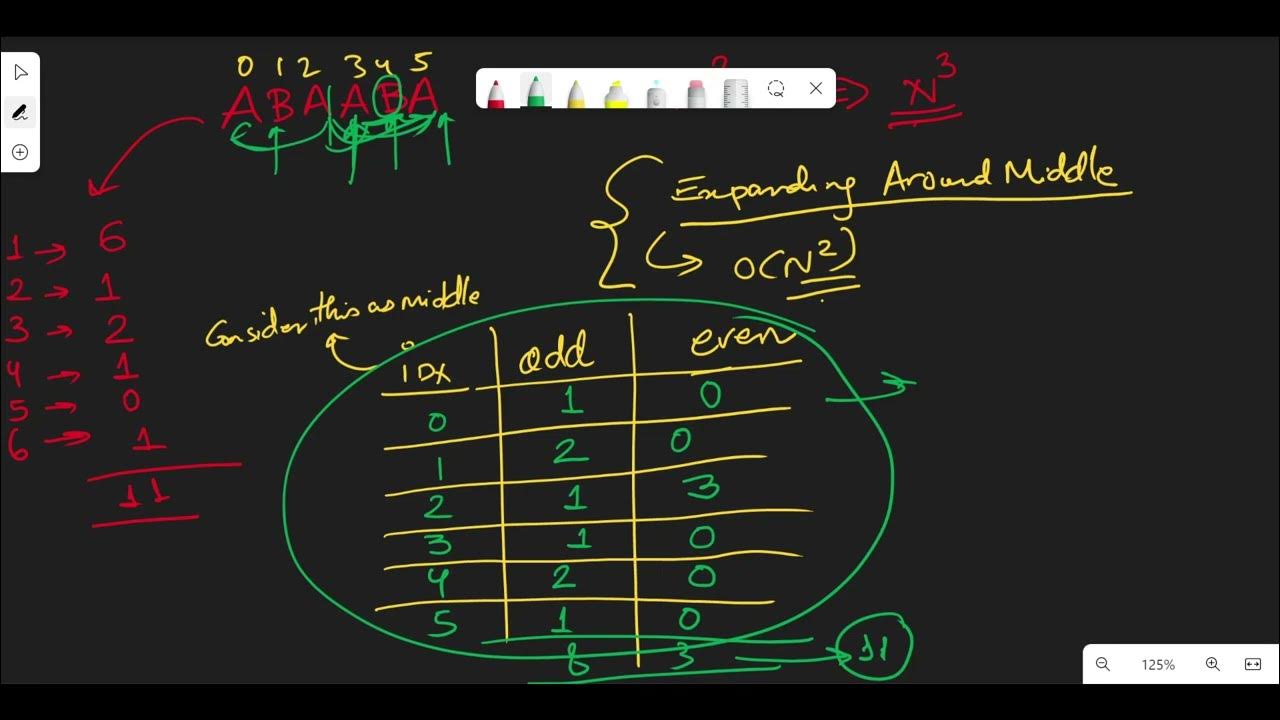 0 1 2 3 4 5
A B A A B A
⇒ N³
Expanding Around Middle
↳ O(N²)
1 → 6
2 → 1
3 → 2
4 → 1
5 → 0
6 → 1
11
Consider this as middle
IDX odd even
0 1 0
1 2 0
2 1 3
3 1 0
4 2 0
5 1 0
8 3 → 11
125%